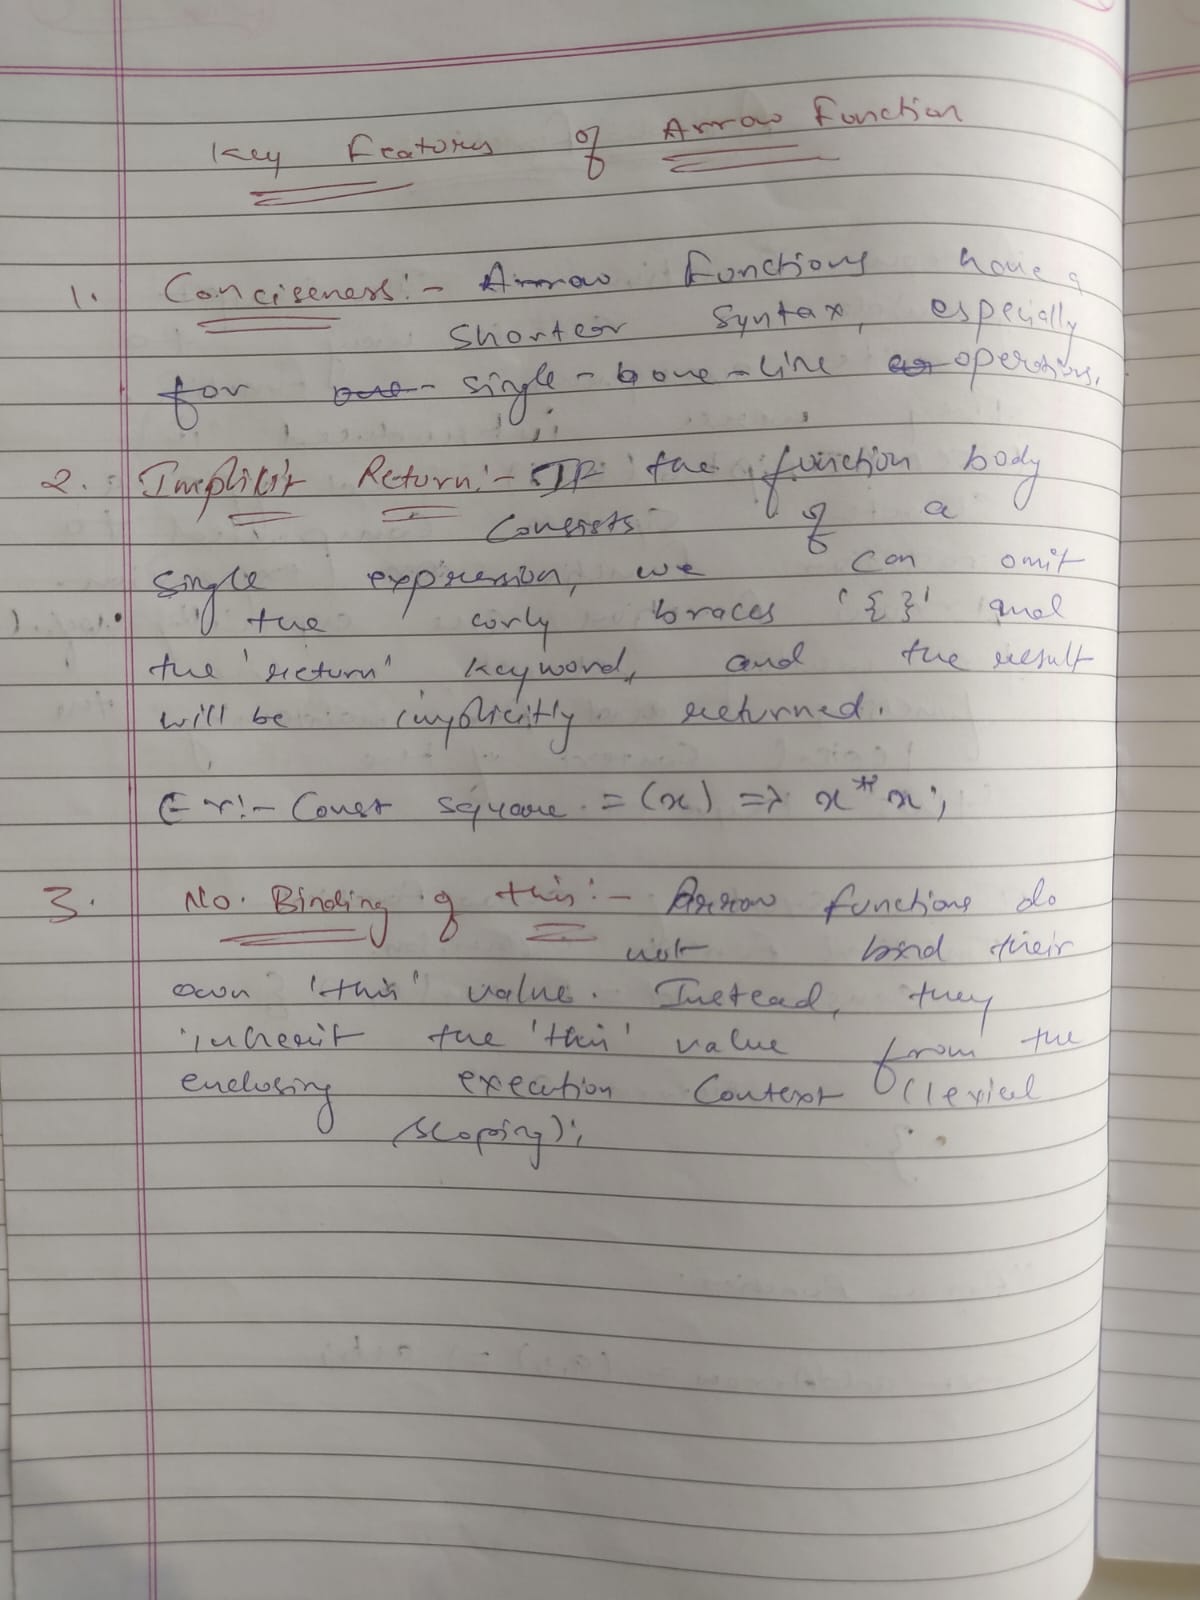 Key Features of Arrow Function
1. Conciseness:- Arrow Functions have a
shorter syntax, especially
for single - one-line operations.
2. Implicit Return:- If the function body
consists of a
single expression, we can omit
the curly braces '{}' and
the 'return' keyword, and the result
will be implicitly returned.
Ex:- Const square = (x) => x*x;
3. No. Binding of this:- Arrow functions do
not bind their
own 'this' value. Instead, they
inherit the 'this' value from the
enclosing execution Context (lexical
scoping);